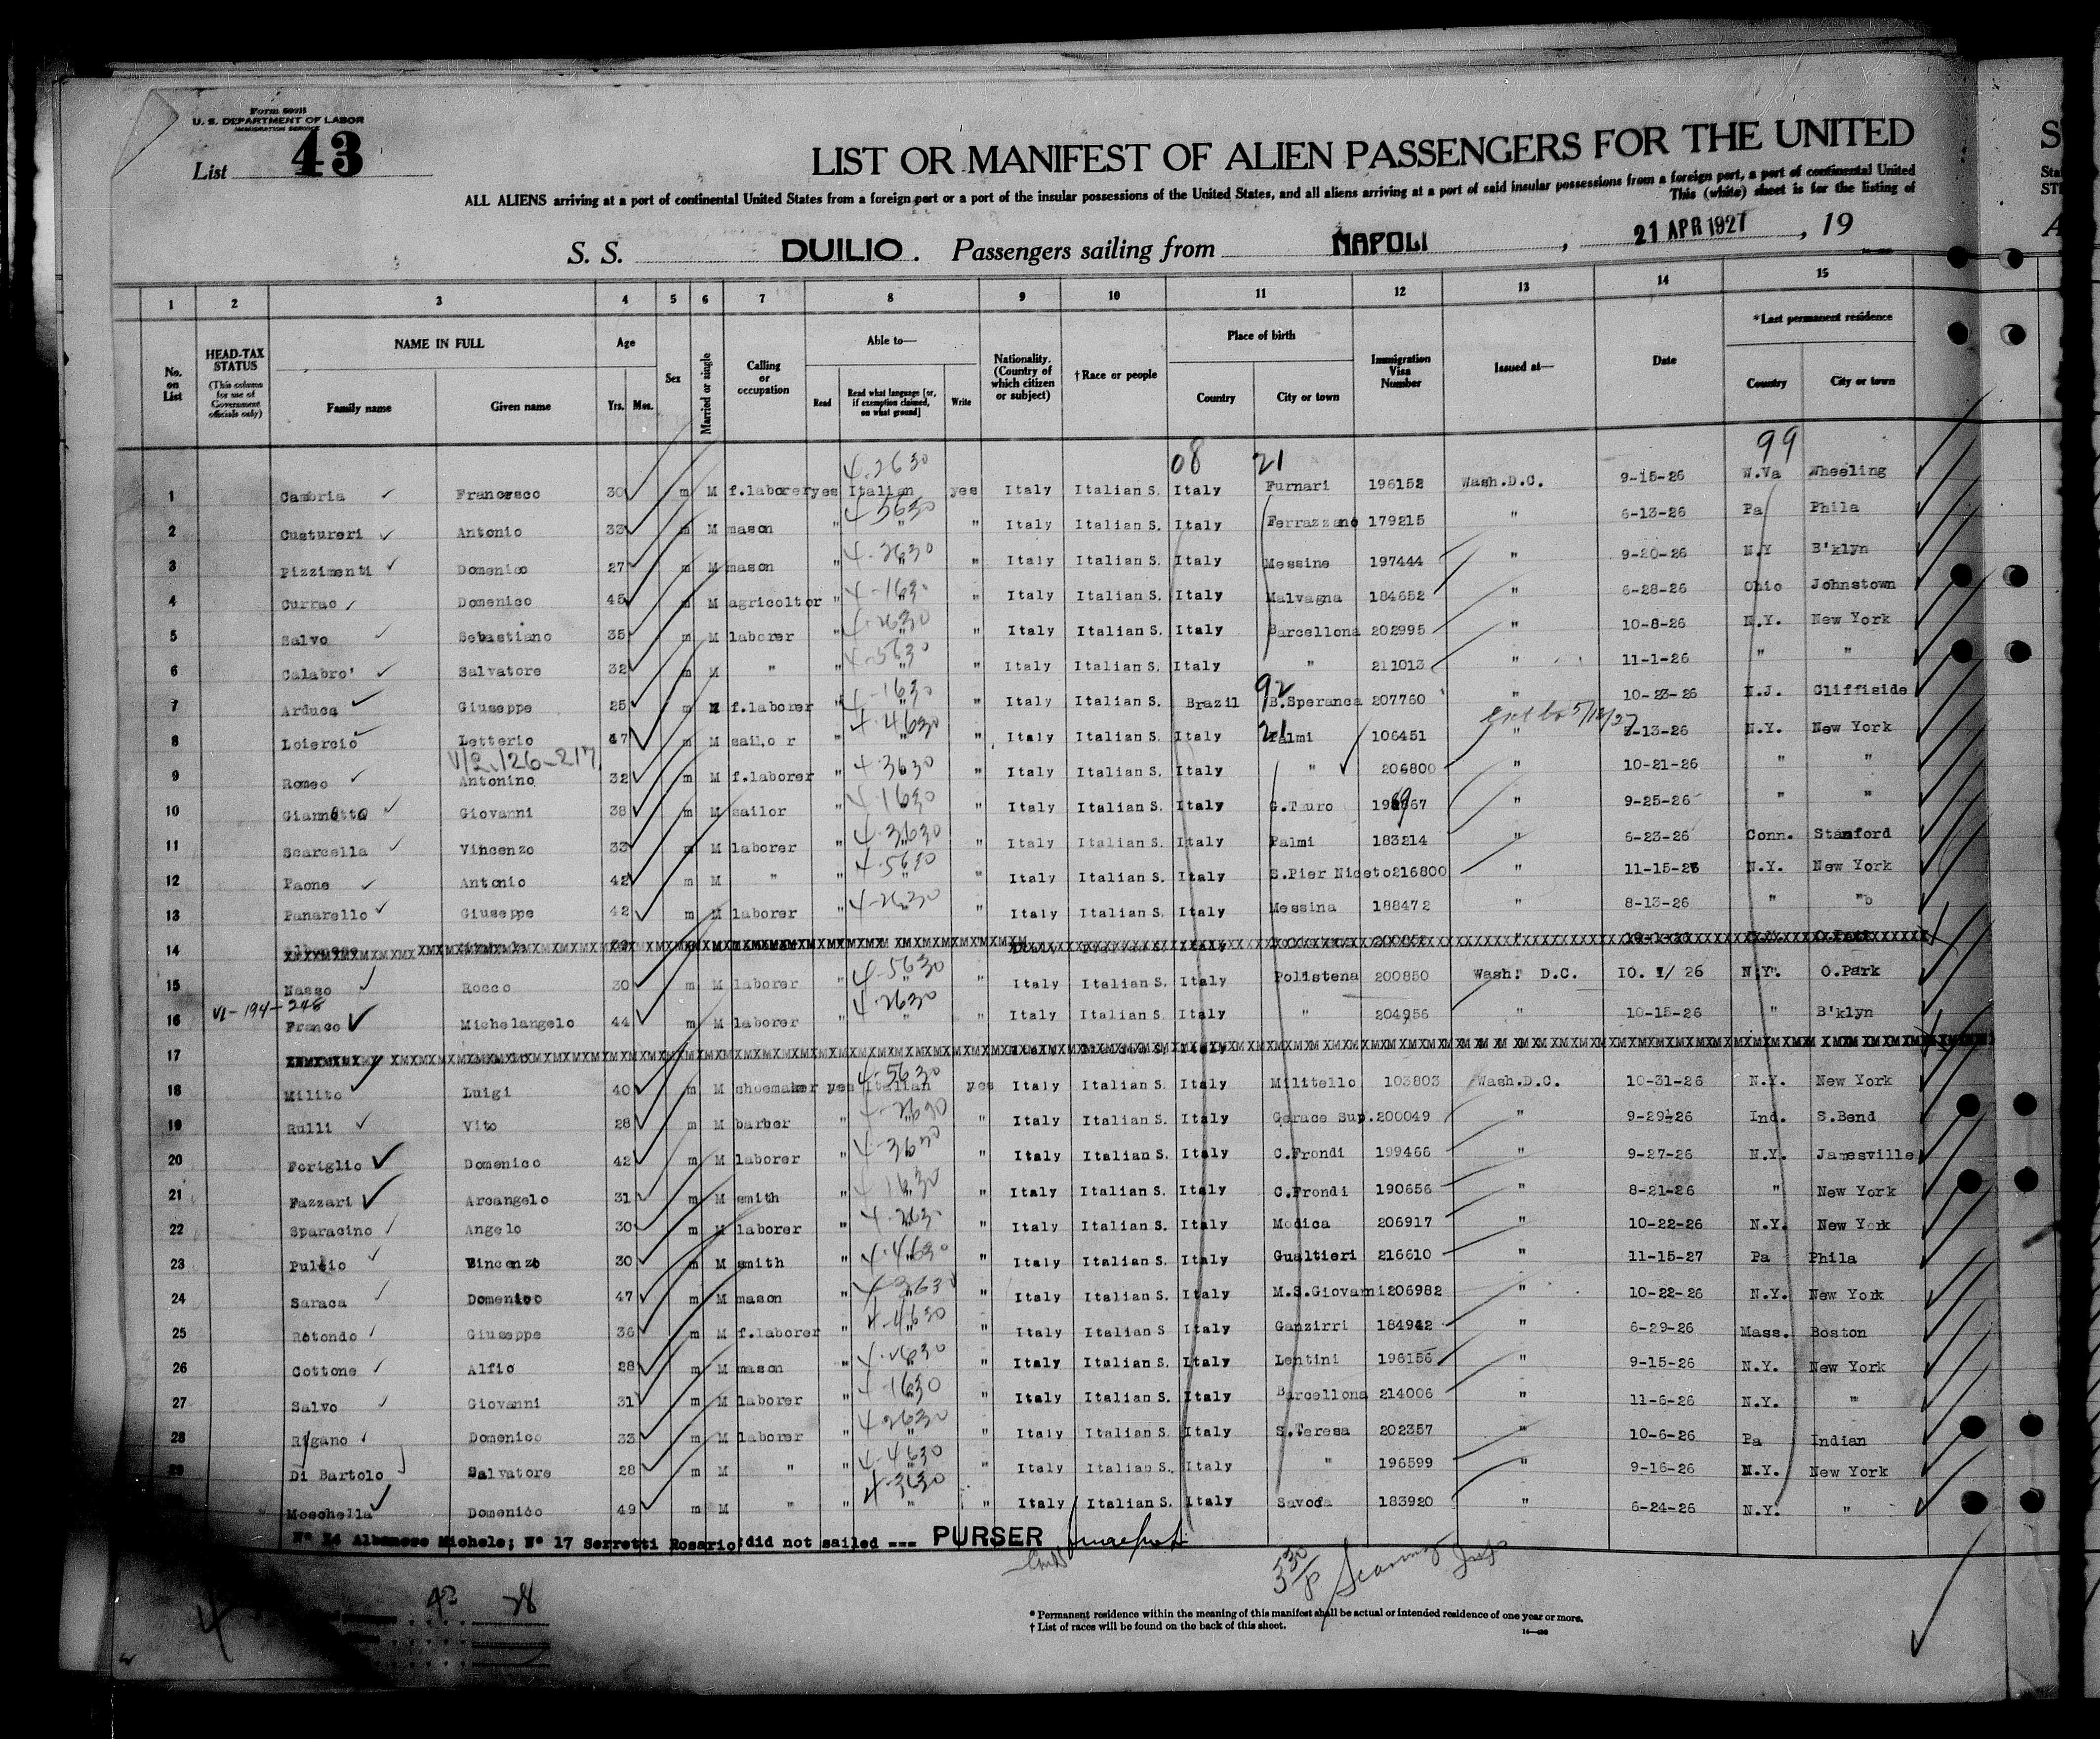 Form 500B
U. S. DEPARTMENT OF LABOR
IMMIGRATION SERVICE
List 43
LIST OR MANIFEST OF ALIEN PASSENGERS FOR THE UNITED
ALL ALIENS arriving at a port of continental United States from a foreign port or a port of the insular possessions of the United States, and all aliens arriving at a port of said insular possessions from a foreign port, a port of continental United
This (white) sheet is for the listing of
S. S. DUILIO. Passengers sailing from NAPOLI, 21 APR 1927, 19
1 2 3 4 5 6 7 8 9 10 11 12 13 14 15
No. on List HEAD-TAX STATUS (This column for use of Government officials only) NAME IN FULL Family name Given name Age Yrs. Mos. Sex Married or single Calling or occupation Able to— Read Read what language [or, if exemption claimed, on what ground] Write Nationality. (Country of which citizen or subject) †Race or people Place of birth Country City or town Immigration Visa Number Issued at— Date *Last permanent residence Country City or town
4-2630 08 21 99
1 Cambria Francesco 30 m M f.laborer yes Italian yes Italy Italian S. Italy Furnari 196152 Wash.D.C. 9-15-26 W.Va Wheeling
4-5630
2 Custureri Antonio 33 m M mason " " " Italy Italian S. Italy Ferrazzano 179215 " 6-13-26 Pa Phila
4-2630
3 Pizzimenti Domenico 27 m M mason " " " Italy Italian S. Italy Messine 197444 " 9-20-26 N.Y B'klyn
4-1630
4 Currao Domenico 45 m M agricoltor " " " Italy Italian S. Italy Malvagna 184652 " 6-28-26 Ohio Johnstown
4-2630
5 Salvo Sebastiano 35 m M laborer " " " Italy Italian S. Italy Barcellona 202995 " 10-8-26 N.Y. New York
4-5630
6 Calabro' Salvatore 32 m M " " " " Italy Italian S. Italy " 211013 " 11-1-26 " "
4-1630 92
7 Arduca Giuseppe 25 m M f.laborer " " " Italy Italian S. Brazil B.Speranca 207760 " 10-23-26 N.J. Cliffiside
4-4630 21 5/12/27
8 Loiercio Letterio 47 m M sailor " " " Italy Italian S. Italy Palmi 106451 " -13-26 N.Y. New York
V/2.126-217 4-3630
9 Romeo Antonino 32 m M f.laborer " " " Italy Italian S. Italy " 206800 " 10-21-26 " "
4-1630
10 Giannotto Giovanni 38 m M sailor " " " Italy Italian S. Italy G.Tauro " 9-25-26 " "
4-3630
11 Scarcella Vincenzo 33 m M laborer " " " Italy Italian S. Italy Palmi 183214 " 6-23-26 Conn. Stamford
4-5630
12 Paone Antonio 42 m M " " " " Italy Italian S. Italy S.Pier Niceto 216800 " 11-15-26 N.Y. New York
4-2630
13 Panarello Giuseppe 42 m M laborer " " " Italy Italian S. Italy Messina 188472 " 8-13-26 " "
14
4-5630
15 Nasso Rocco 30 m M laborer " " Italy Italian S. Italy Polistena 200850 Wash. D.C. 10. 1/ 26 N.Y. O.Park
VI-194-248 4-2630
16 Franco Michelangelo 44 m M laborer " " " Italy Italian S. Italy " 204956 " 10-15-26 " B'klyn
17
4-5630
18 Milito Luigi 40 m M shoemaker yes Italian yes Italy Italian S. Italy Militello 103803 Wash.D.C. 10-31-26 N.Y. New York
4-2630
19 Rulli Vito 28 m M barber " " " Italy Italian S. Italy Gerace Sup. 200049 " 9-29-26 Ind. S.Bend
4-3630
20 Foriglio Domenico 42 m M laborer " " Italy Italian S. Italy C.Frondi 199466 " 9-27-26 N.Y. Jamesville
4-1630
21 Fazzari Arcangelo 31 m M smith " " " Italy Italian S. Italy C.Frondi 190656 " 8-21-26 " New York
4-2630
22 Sparacino Angelo 30 m M laborer " " Italy Italian S. Italy Modica 206917 " 10-22-26 N.Y. New York
4-4630
23 Pulsio Vincenzo 30 m M smith " " " Italy Italian S. Italy Gualtieri 216610 " 11-15-27 Pa Phila
4-3630
24 Saraca Domenico 47 m M mason " " " Italy Italian S. Italy M.S.Giovanni 206982 " 10-22-26 N.Y. New York
4-4630
25 Rotondo Giuseppe 36 m M f.laborer " " " Italy Italian S Italy Ganzirri 184942 " 6-29-26 Mass. Boston
26 Cottone Alfio 28 m M mason " " " Italy Italian S. Italy Lentini 196156 " 9-15-26 N.Y. New York
4-1630
27 Salvo Giovanni 31 m M laborer " " " Italy Italian S. Italy Barcellona 214006 " 11-6-26 N.Y. "
4-2630
28 Rigano Domenico 33 m M laborer " " " Italy Italian S. Italy S.Teresa 202357 " 10-6-26 Pa Indian
4-4630
29 Di Bartolo Salvatore 28 m M " " " " Italy Italian S. Italy " 196599 " 9-16-26 N.Y. New York
4-3630
Moschella Domenico 49 m M " " " " Italy Italian S. Italy Savoca 183920 " 6-24-26 N.Y. "
N° 14 Albanese Michele; N° 17 Serretti Rosario:did not sailed --- PURSER
530/P
* Permanent residence within the meaning of this manifest shall be actual or intended residence of one year or more.
† List of races will be found on the back of this sheet.